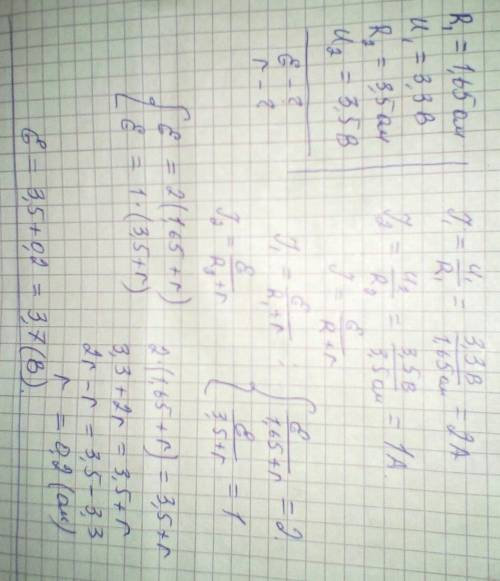 R₁ = 1,65 ом
U₁ = 3,3 В
R₂ = 3,5 ом
U₂ = 3,5 В
ℰ - ?
r - ?
J₁ = U₁/R₁ = 3,3В/1,65ом = 2А
J₂ = U₂/R₂ = 3,5В/3,5ом = 1А.
J = ℰ/(R+r)
J₁ = ℰ/(R₁+r),
J₂ = ℰ/(R₂+r)
{ ℰ/(1,65+r) = 2
ℰ/(3,5+r) = 1
{ ℰ = 2(1,65 + r)
ℰ = 1·(3,5+r)
2·(1,65+r) = 3,5+r
3,3+2r = 3,5+r
2r - r = 3,5-3,3
r = 0,2 (ом)
ℰ = 3,5+0,2 = 3,7(В).